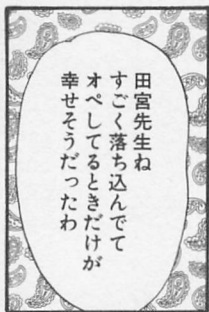 田宮先生ね
すごく落ち込んでて
オペしてるときだけが
幸せそうだったわ